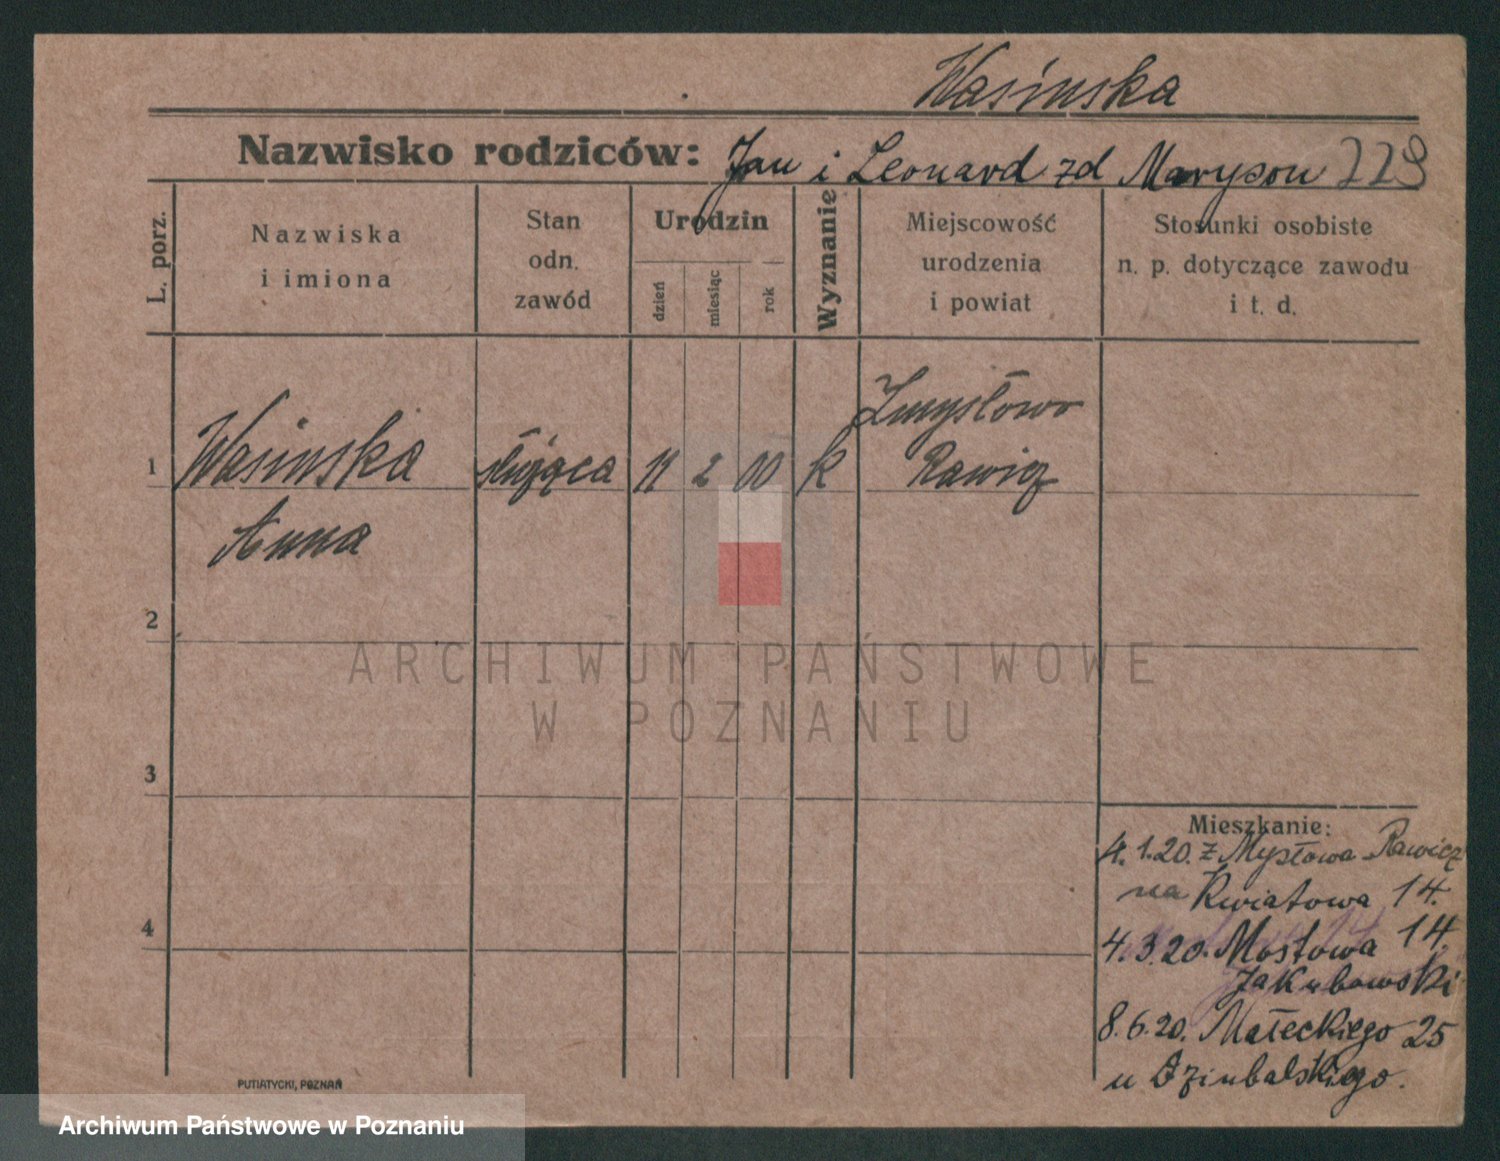 Wasinska
Nazwisko rodziców: Jan i Leonard zd Maryson 229
L. porz.
Nazwiska
i imiona
Stan
odn.
zawód
Urodzin
dzień
miesiąc
rok
Wyznanie
Miejscowość
urodzenia
i powiat
Stosunki osobiste
n. p. dotyczące zawodu
i t. d.
1
Wasinska
Anna
służąca
11 2 00
k
Zmysłowo
Rawicz
2
3
4
Mieszkanie:
4.1.20. z Mysłowa Rawicz
na Kwiatowa 14.
4.3.20. Mostowa 14.
Jakubowski
8.6.20. Małeckiego 25
u Dziubalskiego.
PUTIATYCKI, POZNAŃ
ARCHIWUM PAŃSTWOWE
W POZNANIU
Archiwum Państwowe w Poznaniu